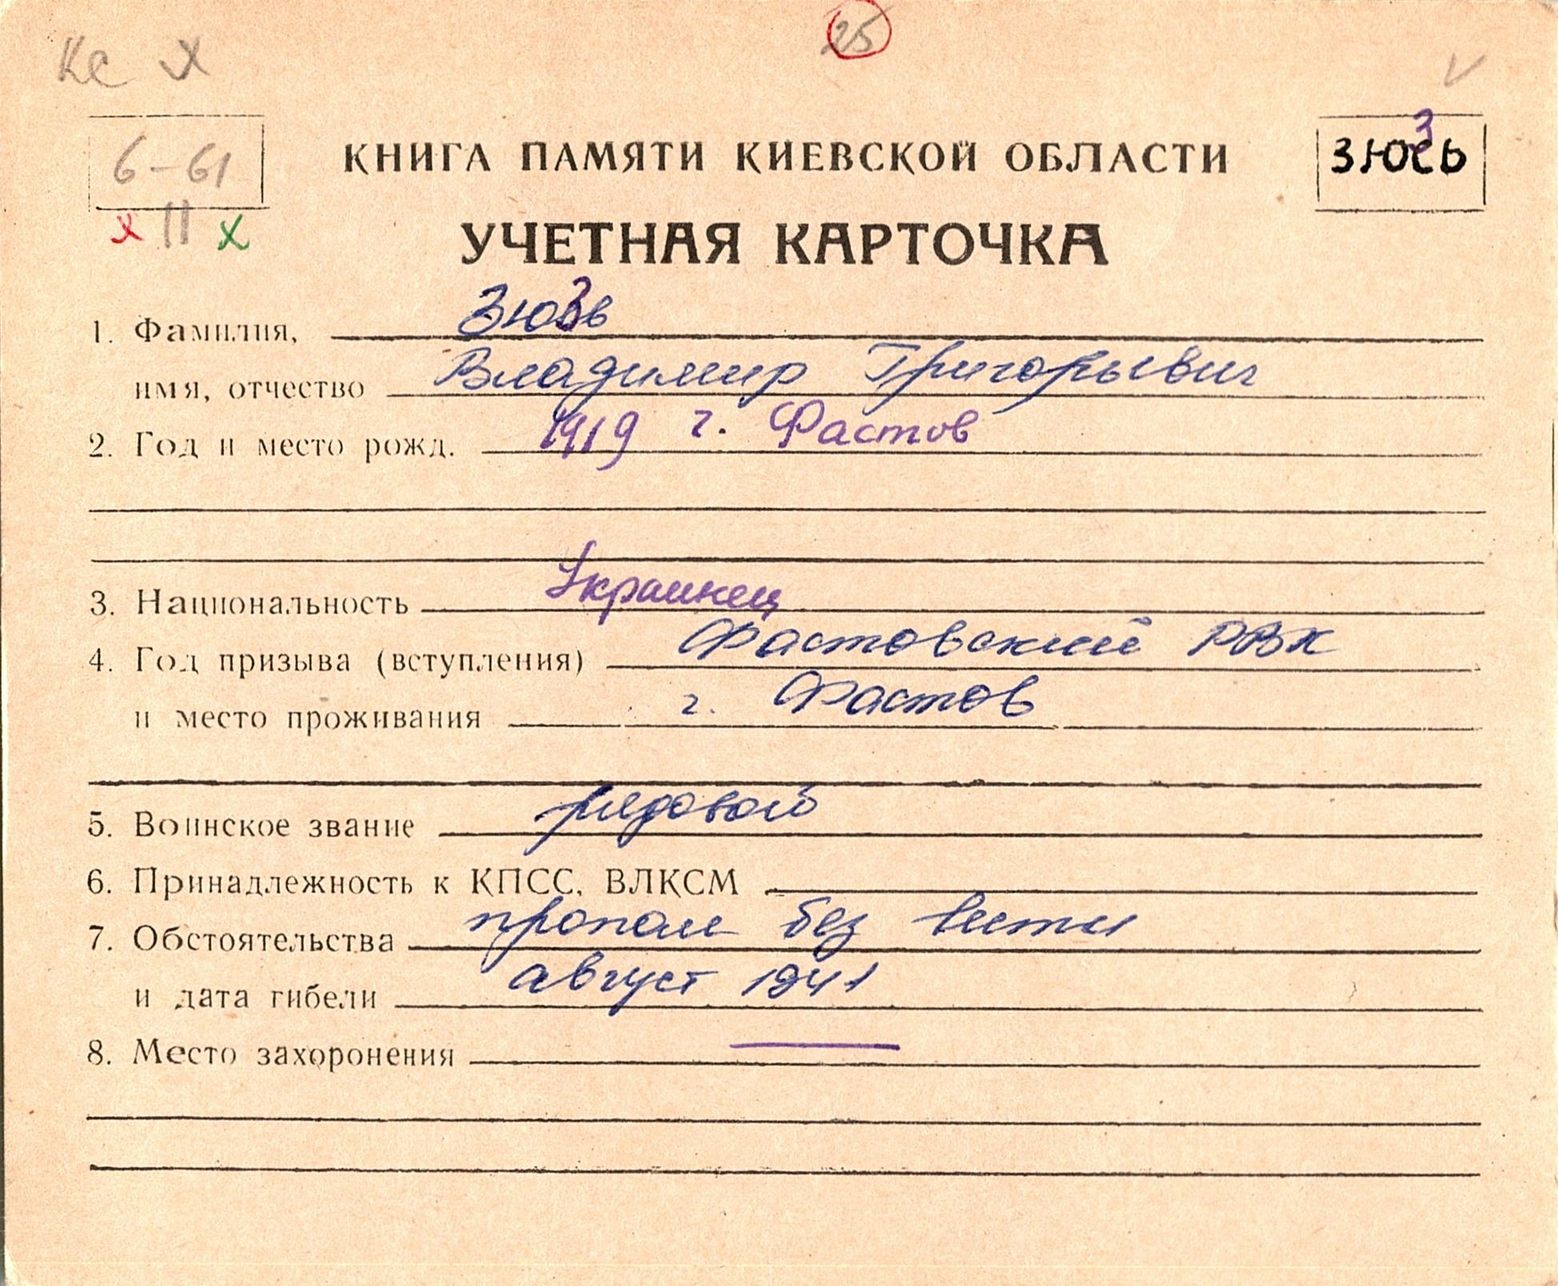 25
Ке Х V
6-61 КНИГА ПАМЯТИ КИЕВСКОЙ ОБЛАСТИ ЗЮЗЬ
х II х
УЧЕТНАЯ КАРТОЧКА
1. Фамилия, Зюзь
имя, отчество Владимир Григорьевич
2. Год и место рожд. 1919 г. Фастов
3. Национальность Украинец
4. Год призыва (вступления) Фастовский РВК
и место проживания г. Фастов
5. Воинское звание рядовой
6. Принадлежность к КПСС, ВЛКСМ
7. Обстоятельства пропал без вести
и дата гибели август 1941
8. Место захоронения —